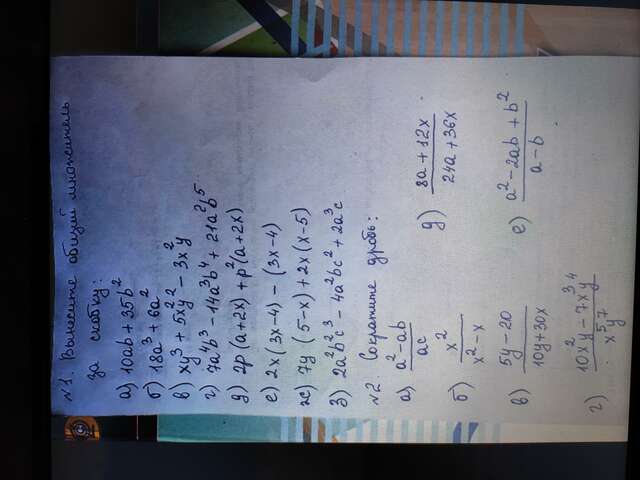 №1. Вынесите общий множитель
за скобку:
а) 10ab + 35b²
б) 18a³ + 6a²
в) xy³ + 5x²y² - 3x²y
г) 7a⁴b³ - 14a³b⁴ + 21a²b⁵
д) 2p(a+2x) + p²(a+2x)
е) 2x(3x-4) - (3x-4)
ж) 7y (5-x) + 2x(x-5)
з) 2a²b²c³ - 4a²bc² + 2a³c
№2. Сократите дробь:
а) (a² - ab)/(ac)
б) x²/(x² - x)
в) (5y - 20)/(10y + 30x)
г) (10x²y - 7x³y⁴)/(x⁵y⁷)
д) (8a + 12x)/(24a + 36x)
е) (a² - 2ab + b²)/(a - b)